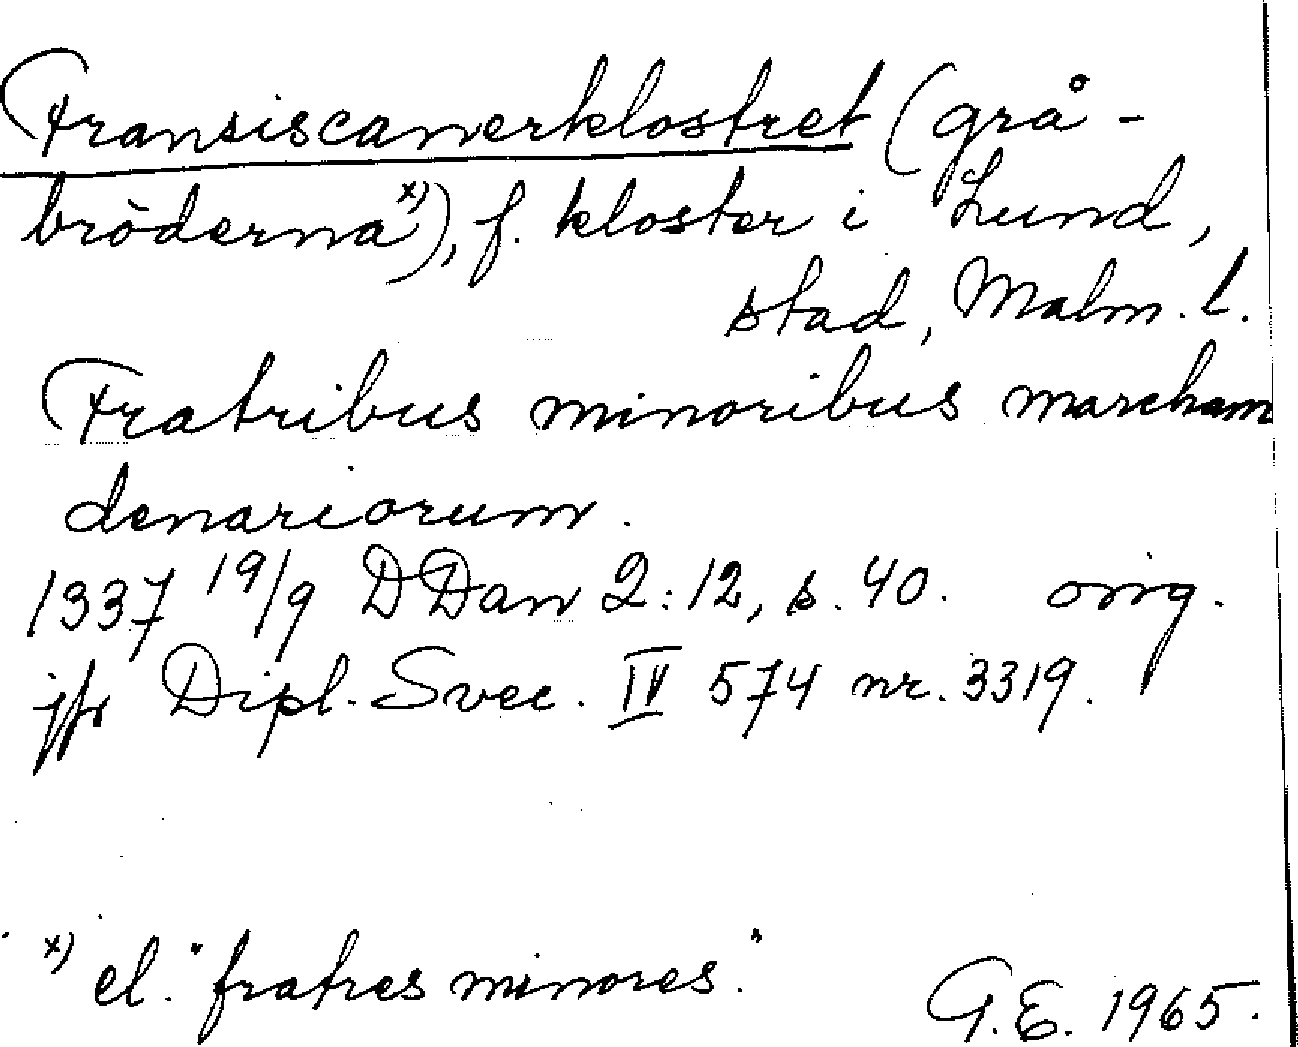 Fransiscanerklostret (grå-
bröderna x)), f. kloster i Lund,
stad, Malm. l.
Fratribus minoribus marcham
denariorum.
1337 19/9 DDan 2:12, s. 40. orig.
jfr Dipl. Svec. IV 574 nr. 3319.
x) el. "fratres minores."
G.E. 1965.